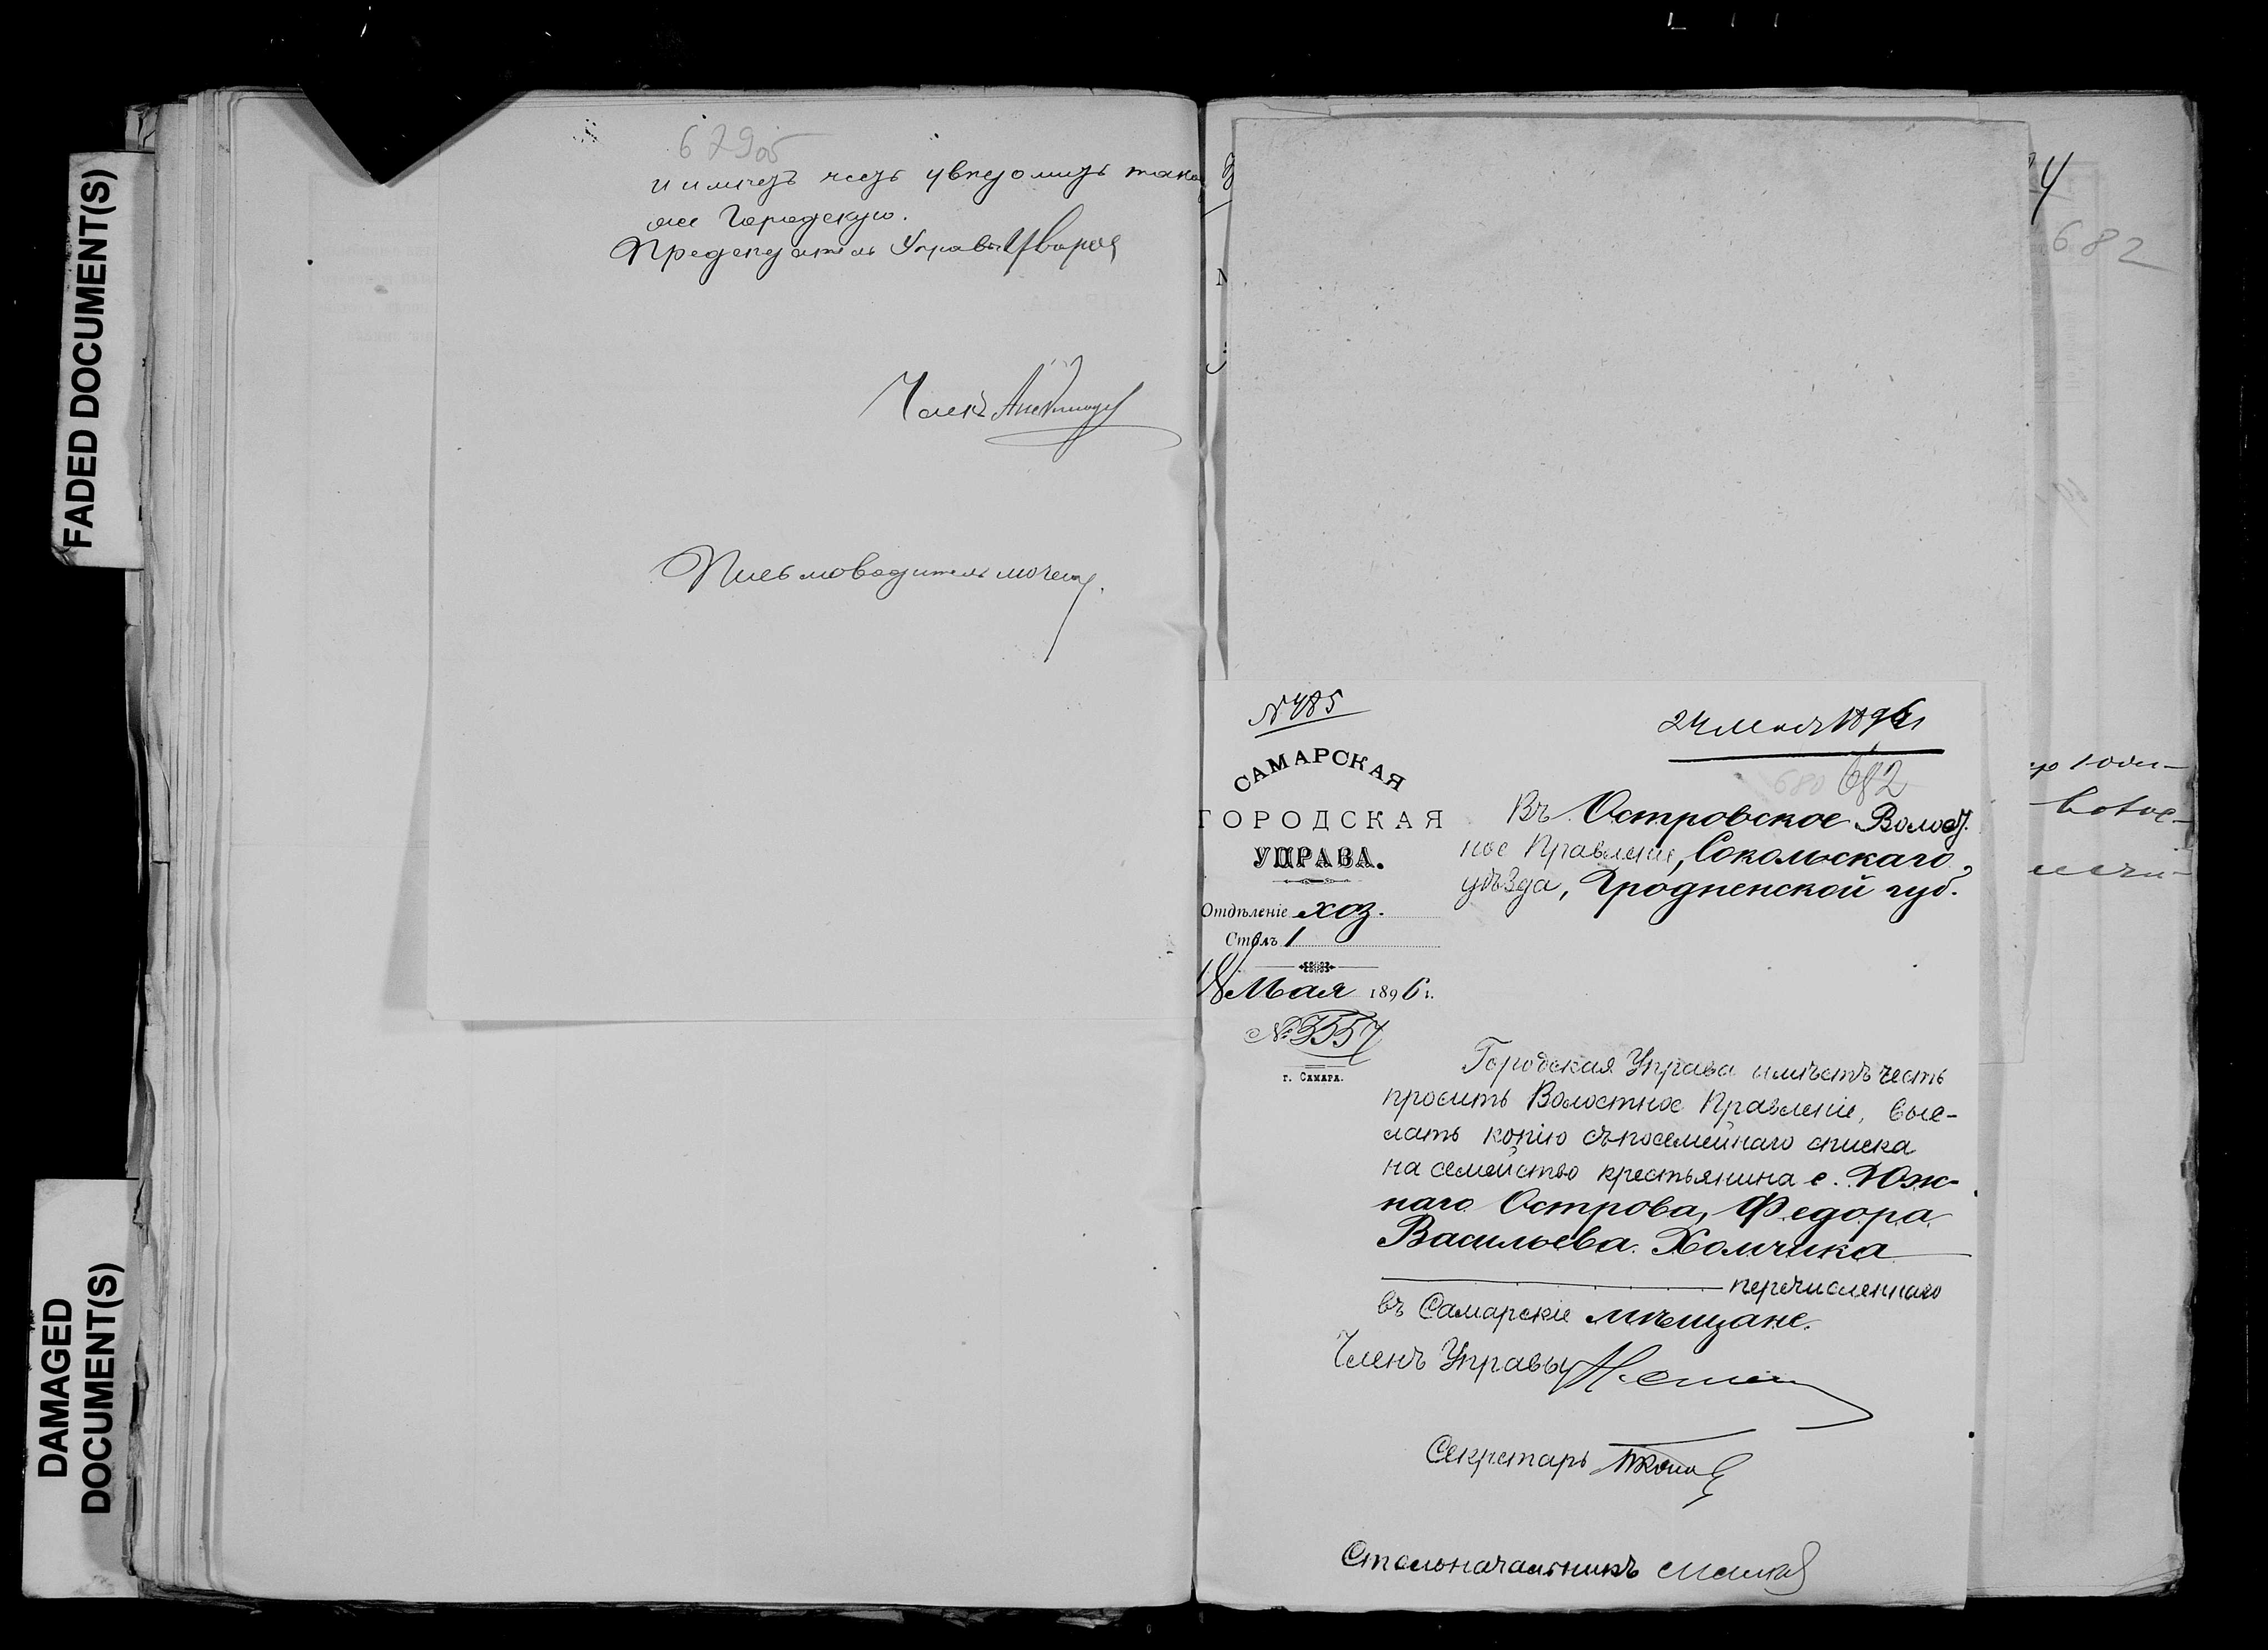 FADED DOCUMENT(S)
DAMAGED
DOCUMENT(S)
679об
и имѣетъ честь увѣдомить
же Городскую.
Предсѣдатель Управы
Членъ
Письмоводитель
682
№ 485
24 мая 1896 г
САМАРСКАЯ
ГОРОДСКАЯ
УПРАВА.
Отдѣленіе хоз.
Столъ 1
Мая 1896 г.
№ 3557
г. САМАРА.
680 682
Въ Островское Волост.
ное Правленіе, Сокольскаго
уѣзда, Гродненской губ.
Городская Управа имѣетъ честь
просить Волостное Правленіе, выс-
лать копію съ посемейнаго списка
на семейство крестьянина с. Юж-
наго Острова, Федора
Васильева Хомчика
перечисленнаго
въ Самарскіе мѣщане.
Членъ Управы
Секретарь
Столоначальникъ